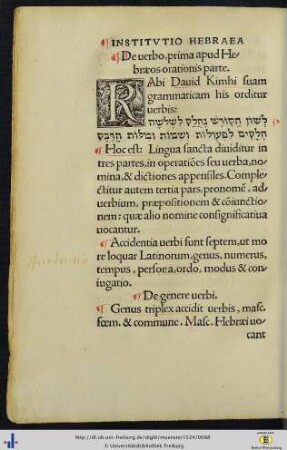 ¶ INSTITVTIO HEBRAEA
¶ De uerbo, prima apud He-
bræos orationis parte.
RAbi Dauid Kimhi suam
grammaticam his orditur
uerbis:
לשון הקודש נחלק לשלשה
חלקים לפעולות ושמות ומלות הדבק
¶ Hoc est: Lingua sancta diuiditur in
tres partes, in operatiões seu uerba, no-
mina, & dictiones appensiles. Comple-
ctitur autem tertia pars, pronomẽ, ad-
uerbium, præpositionem & cõiunctio-
nem: quæ alio nomine consignificatiua
uocantur.
¶ Accidentia uerbi sunt septem, ut mo
re loquar Latinorum, genus, numerus,
tempus, persona, ordo, modus & con-
iugatio.
¶ De genere uerbi.
¶ Genus triplex accidit uerbis, masc.
fœm. & commune. Masc. Hebræi uo-
cant
http://dl.ub.uni-freiburg.de/diglit/muenster1524/0088
© Universitätsbibliothek Freiburg